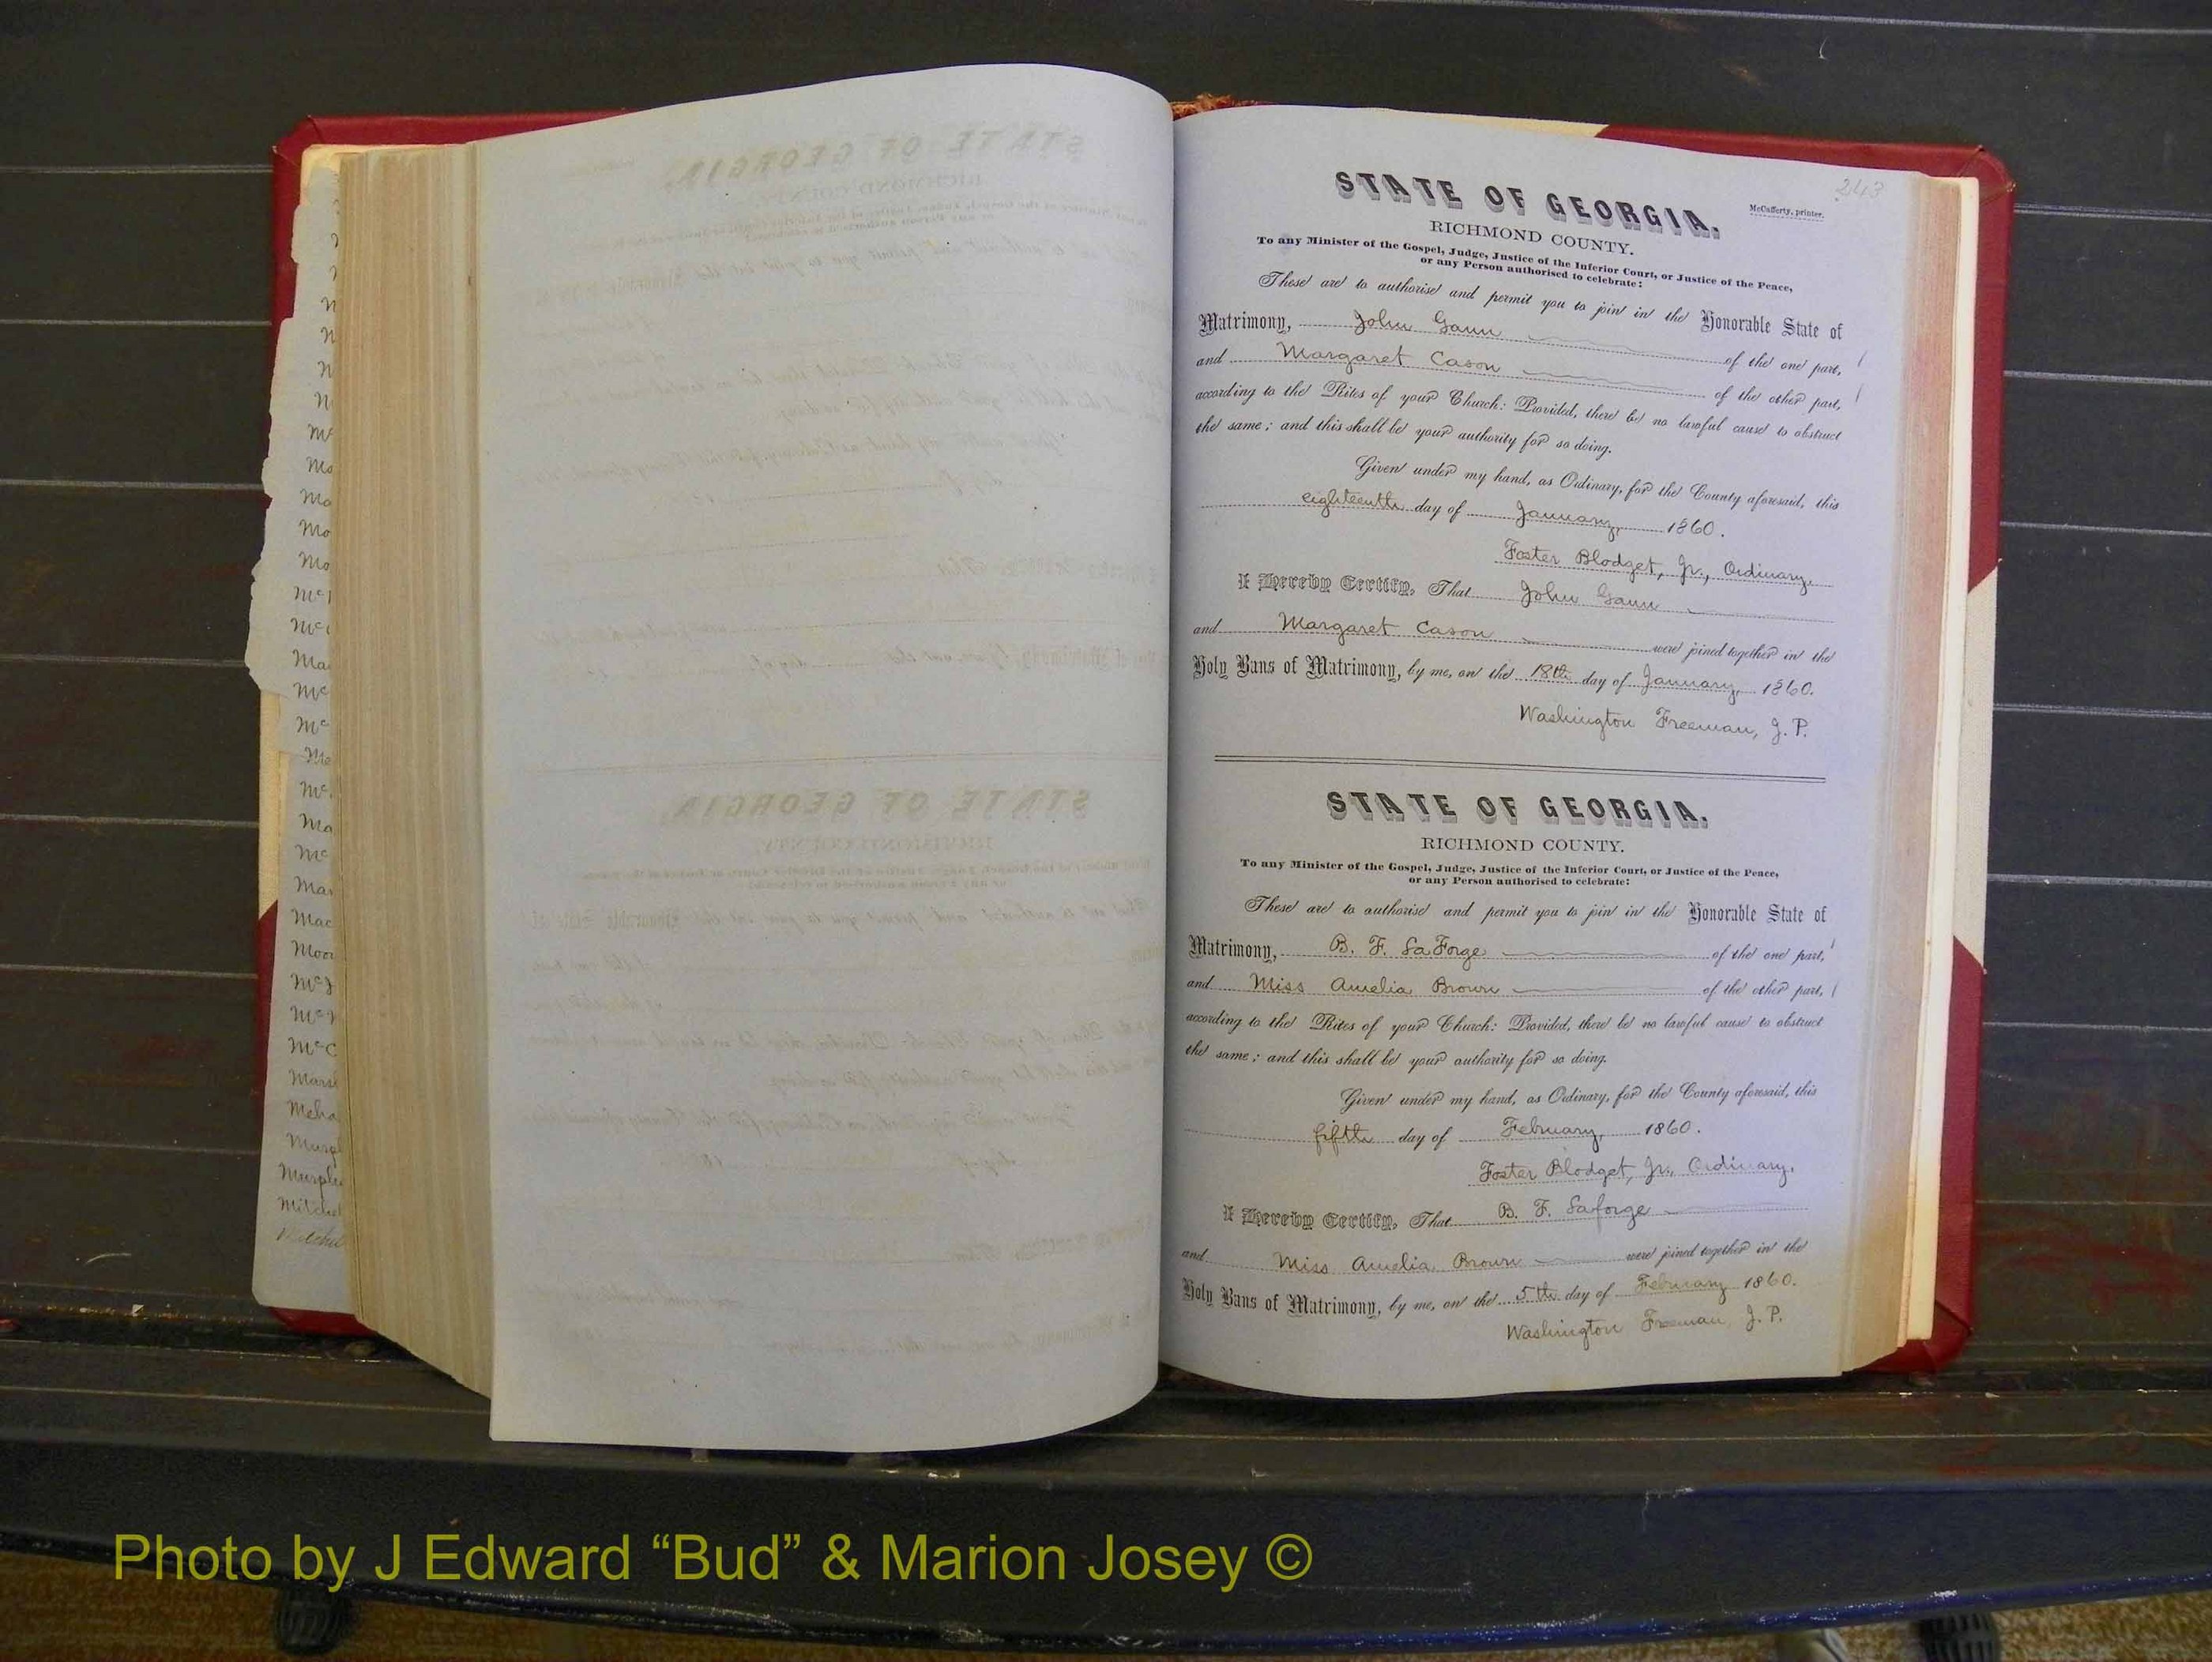 243
STATE OF GEORGIA.
McCafferty, printer.
RICHMOND COUNTY.
To any Minister of the Gospel, Judge, Justice of the Inferior Court, or Justice of the Peace,
or any Person authorised to celebrate:
These are to authorise and permit you to join in the Honorable State of
Matrimony, John Gann of the one part,
and Margaret Cason of the other part,
according to the Rites of your Church: Provided, there be no lawful cause to obstruct
the same; and this shall be your authority for so doing.
Given under my hand, as Ordinary, for the County aforesaid, this
eighteenth day of January, 1860.
Foster Blodget, Jr., Ordinary.
I Hereby Certify, That John Gann
and Margaret Cason were joined together in the
Holy Bans of Matrimony, by me, on the 18th day of January, 1860.
Washington Freeman, J. P.
STATE OF GEORGIA.
RICHMOND COUNTY.
To any Minister of the Gospel, Judge, Justice of the Inferior Court, or Justice of the Peace,
or any Person authorised to celebrate:
These are to authorise and permit you to join in the Honorable State of
Matrimony, B. F. LaForge of the one part,
and Miss Amelia Brown of the other part,
according to the Rites of your Church: Provided, there be no lawful cause to obstruct
the same; and this shall be your authority for so doing.
Given under my hand, as Ordinary, for the County aforesaid, this
fifth day of February, 1860.
Foster Blodget, Jr., Ordinary.
I Hereby Certify, That B. F. Laforge
and Miss Amelia Brown were joined together in the
Holy Bans of Matrimony, by me, on the 5th day of February 1860.
Washington Freeman, J. P.
Photo by J Edward “Bud” & Marion Josey ©